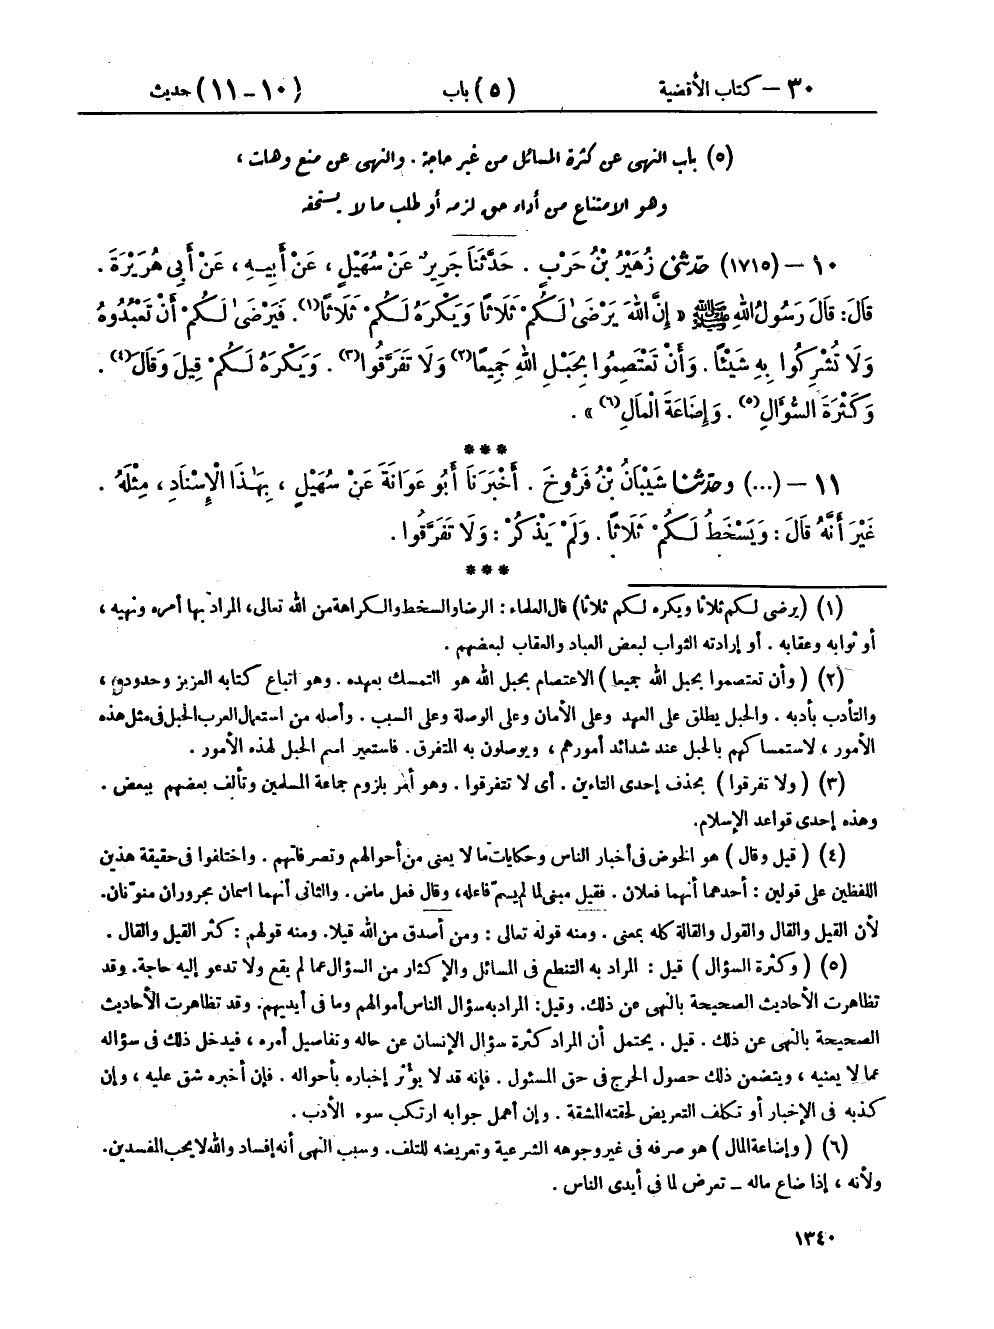 ٣٠ – كتاب الأقضية (٥) باب (١٠-١١) حديث
(٥) باب النهى عن كثرة المسائل من غير حاجة . والنهى عن منع وهات ،
وهو الامتناع من أداء حق لزمه أو طلب ما لا يستحقه
١٠ – (١٧١٥) حَدَّثَنِي زُهَيْرُ بْنُ حَرْبٍ . حَدَّثَنَا جَرِيرٌ عَنْ سُهَيْلٍ ، عَنْ أَبِيهِ ، عَنْ أَبِي هُرَيْرَةَ .
قَالَ: قَالَ رَسُولُ اللهِ ﷺ « إِنَّ اللهَ يَرْضَىٰ لَكُمْ ثَلَاثًا وَيَكْرَهُ لَكُمْ ثَلَاثًا(١). فَيَرْضَىٰ لَكُمْ أَنْ تَعْبُدُوهُ
وَلَا تُشْرِكُوا بِهِ شَيْئًا . وَأَنْ تَعْتَصِمُوا بِحَبْلِ اللهِ جَمِيعًا(٢) وَلَا تَفَرَّقُوا(٣) . وَيَكْرَهُ لَكُمْ قِيلَ وَقَالَ(٤) .
وَكَثْرَةَ السُّؤَالِ(٥) . وَإِضَاعَةَ الْمَالِ(٦) » .
***
١١ – (...) وحَدَّثَنَا شَيْبَانُ بْنُ فَرُّوخَ . أَخْبَرَنَا أَبُو عَوَانَةَ عَنْ سُهَيْلٍ ، بِهَٰذَا الْإِسْنَادِ ، مِثْلَهُ .
غَيْرَ أَنَّهُ قَالَ : وَيَسْخَطُ لَكُمْ ثَلَاثًا . وَلَمْ يَذْكُرْ : وَلَا تَفَرَّقُوا .
***
(١) (يرضى لكم ثلاثا ويكره لكم ثلاثا) قال العلماء : الرضا والسخط والكراهة من الله تعالى، المراد بها أمره ونهيه ،
أو ثوابه وعقابه . أو إرادته الثواب لبعض العباد والعقاب لبعضهم .
(٢) ( وأن تعتصموا بحبل الله جميعا ) الاعتصام بحبل الله هو التمسك بعهده . وهو اتباع كتابه العزيز وحدوده ،
والتأدب بأدبه . والحبل يطلق على العهد وعلى الأمان وعلى الوصلة وعلى السبب . وأصله من استعمال العرب الحبل فى مثل هذه
الأمور ، لاستمساكهم بالحبل عند شدائد أمورهم ، ويوصلون به المتفرق . فاستعير اسم الحبل لهذه الأمور .
(٣) ( ولا تفرقوا ) بحذف إحدى التاءين . أى لا تتفرقوا . وهو أمر بلزوم جماعة المسلمين وتألف بعضهم ببعض .
وهذه إحدى قواعد الإسلام.
(٤) ( قيل وقال ) هو الخوض فى أخبار الناس وحكايات ما لا يعنى من أحوالهم وتصرفاتهم . واختلفوا فى حقيقة هذين
اللفظين على قولين : أحدهما أنهما فعلان . فقيل مبنى لما لم يسمّ فاعله، وقال فعل ماض . والثانى أنهما اسمان مجروران منوّنان.
لأن القيل والقال والقول والقالة كله بمعنى . ومنه قوله تعالى : ومن أصدق من الله قيلا. ومنه قولهم : كثر القيل والقال .
(٥) ( وكثرة السؤال ) قيل : المراد به التنطع فى المسائل والإكثار من السؤال عما لم يقع ولا تدعو إليه حاجة. وقد
تظاهرت الأحاديث الصحيحة بالنهى عن ذلك. وقيل: المراد به سؤال الناس أموالهم وما فى أيديهم. وقد تظاهرت الأحاديث
الصحيحة بالنهى عن ذلك . قيل . يحتمل أن المراد كثرة سؤال الإنسان عن حاله وتفاصيل أمره ، فيدخل ذلك فى سؤاله
عما لا يعنيه ، ويتضمن ذلك حصول الحرج فى حق المسئول . فإنه قد لا يؤثر إخباره بأحواله . فإن أخبره شق عليه ، وإن
كذبه فى الإخبار أو تكلف التعريض لحقته المشقة . وإن أهمل جوابه ارتكب سوء الأدب .
(٦) ( وإضاعة المال ) هو صرفه فى غير وجوهه الشرعية وتعريضه للتلف. وسبب النهى أنه إفساد والله لا يحب المفسدين.
ولأنه ، إذا ضاع ماله – تعرض لما فى أيدى الناس .
١٣٤٠